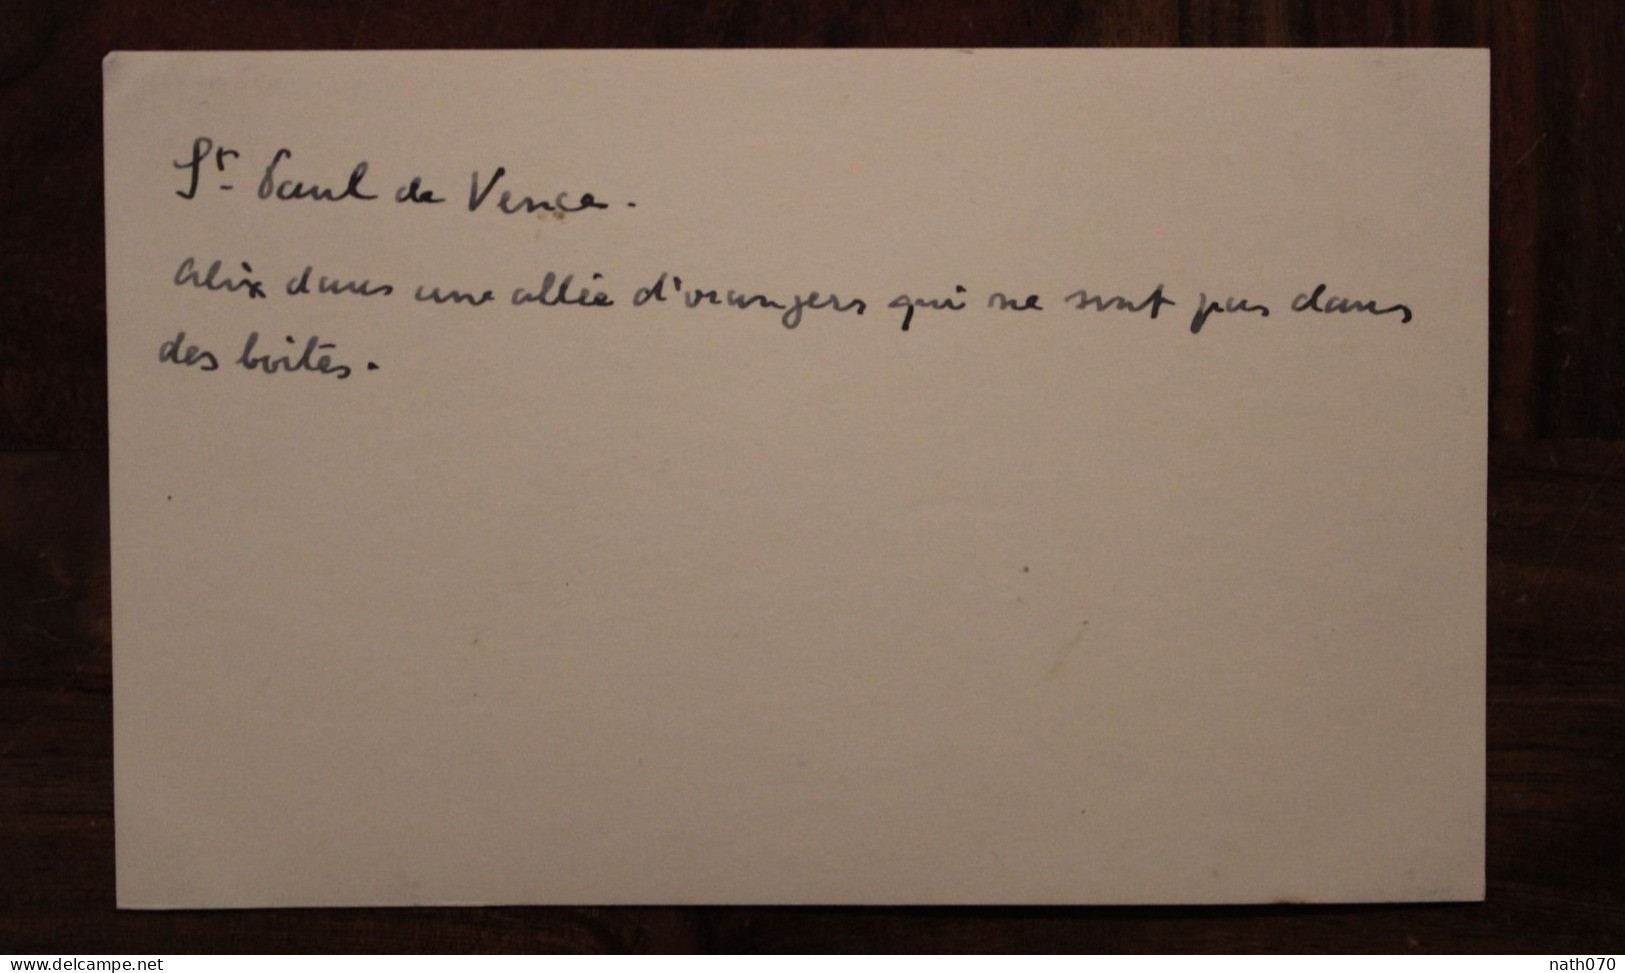 St. Paul de Vence.
Alix dans une allée d'orangers qui ne sont pas dans
des boîtes.
www.delcampe.net
nath070